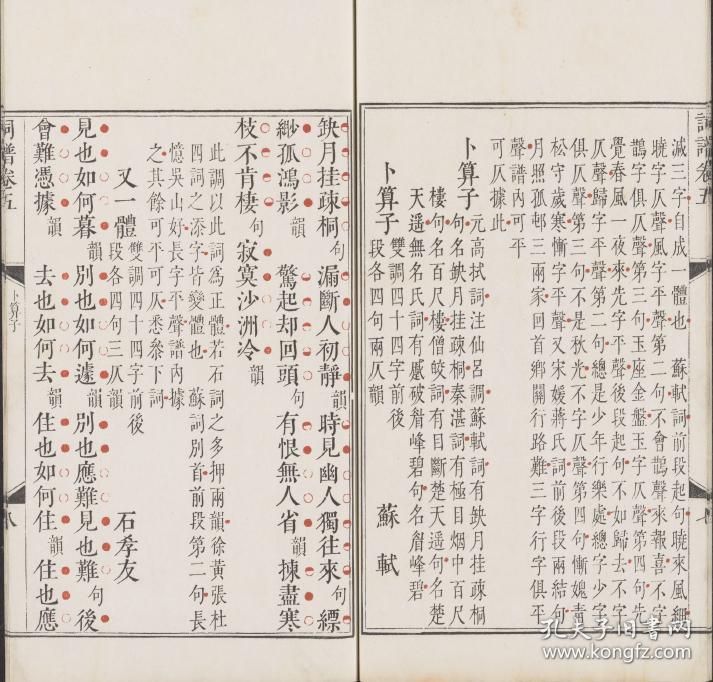 詞譜卷五
減三字自成一體也　蘇軾詞前段起句曉來風細
曉字仄聲風字平聲第二句不會鵲聲來報喜不字
鵲字俱仄聲第三句玉座金盤玉字仄聲第四句先
覺春風一夜來先字平聲後段起句不如歸去不字
仄聲歸字平聲第二句總是少年行樂處總字少字
俱仄聲第三句不是秋光不字仄聲第四句慚媿青
松守歲寒慚字平聲又宋媛蔣氏詞前後段兩結句
月照孤邨三兩家回首鄉關行路難三字行字俱平
聲譜內可平
可仄據此
卜算子
元高拭詞注仙呂調蘇軾詞有缺月挂疎桐
句名缺月挂疎桐秦湛詞有極目烟中百尺
樓句名百尺樓僧皎詞有目斷楚天遥句名楚
天遥無名氏詞有蹙破眉峰碧句名眉峰碧
卜算子
雙調四十四字前後
段各四句兩仄韻
蘇軾
七
缺月挂疎桐句漏斷人初靜韻時見幽人獨往來句縹
緲孤鴻影韻驚起却回頭句有恨無人省韻揀盡寒
枝不肯棲句寂寞沙洲冷韻
此調以此詞為正體若石詞之多押兩韻徐黃張杜
四詞之添字皆變體也　蘇詞別首前段第二句長
憶吳山好長字平聲譜內據
之其餘可平可仄悉叅下詞
又一體
雙調四十四字前後
段各四句三仄韻
石孝友
見也如何暮韻別也如何遽韻別也應難見也難句後
會難憑據韻去也如何去韻住也如何住韻住也應
詞譜卷五
卜算子
八
孔夫子旧书网
www.kongfz.com